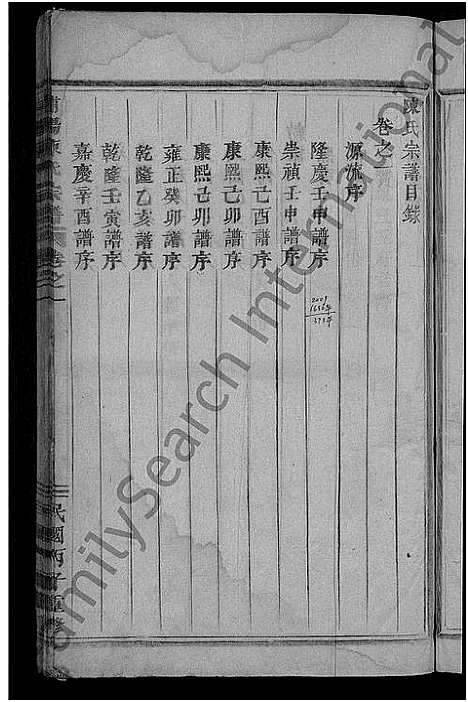 陳氏宗譜目錄
卷之一
源流序
隆慶壬申譜序
崇禎壬申譜序
康熙己酉譜序
康熙己卯譜序
雍正癸卯譜序
乾隆乙亥譜序
乾隆壬寅譜序
嘉慶辛酉譜序
陽陳氏宗譜 卷之一
民國丙子重修
2009
FamilySearch International